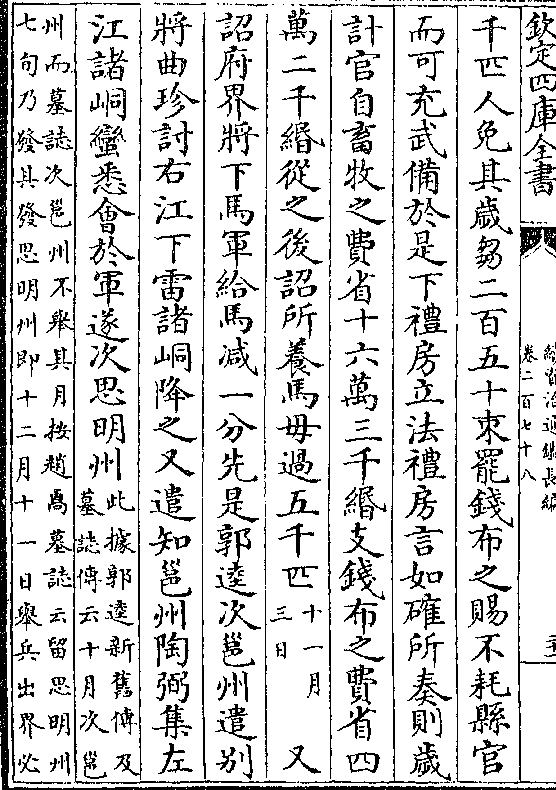 欽定四庫全書
續資治通鑑長編
卷二百七十八
千匹人免其歲芻二百五十束罷錢布之賜不耗縣官
而可充武備於是下禮房立法禮房言如確所奏則歲
計官自畜牧之費省十六萬三千緡支錢布之費省四
萬二千緡從之後詔所養馬毋過五千匹
十一月
三日
又
詔府界將下馬軍給馬減一分先是郭逵次邕州遣别
將曲珍討右江下雷諸峒降之又遣知邕州陶弼集左
江諸峒蠻悉會於軍遂次思明州
此據郭逵新舊傳及
墓誌傳云十月次邕
州而墓誌次邕州不舉其月按趙卨墓誌云留思明州
七旬乃發其發思明州即十二月十一日舉兵出界必